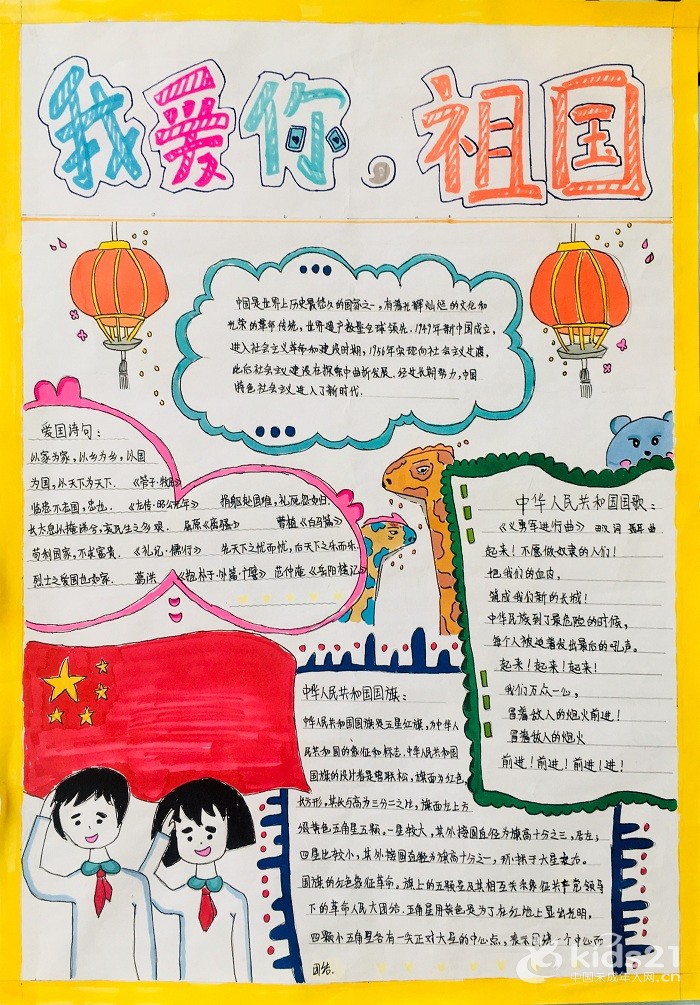 我爱你,祖国
中国是世界上历史最悠久的国家之一,有着光辉灿烂的文化和
光荣的革命传统,世界遗产数量全球领先.1949年新中国成立,
进入社会主义革命和建设时期,1956年实现向社会主义过渡,
此后社会主义建设在探索中曲折发展.经过长期努力,中国
特色社会主义进入了新时代.
爱国诗句:
以家为家,以乡为乡,以国
为国,以天下为天下.《管子·牧民》
临患不忘国,忠也.《左传·昭公元年》 捐躯赴国难,视死忽如归.
长太息以掩涕兮,哀民生之多艰. 屈原《离骚》 曹植《白马篇》
苟利国家,不求富贵.《礼记·儒行》 先天下之忧而忧,后天下之乐而乐.
烈士之爱国也如家. 葛洪《抱朴子·外篇·广譬》 范仲淹《岳阳楼记》
中华人民共和国国歌:
《义勇军进行曲》 田汉 词 聂耳 曲
起来!不愿做奴隶的人们!
把我们的血肉,
筑成我们新的长城!
中华民族到了最危险的时候,
每个人被迫着发出最后的吼声。
起来!起来!起来!
我们万众一心,
冒着敌人的炮火前进!
冒着敌人的炮火
前进!前进!前进!进!
中华人民共和国国旗:
中华人民共和国国旗是五星红旗,为中华人
民共和国的象征和标志.中华人民共和国
国旗的设计者是曾联松,旗面为红色,
长方形,其长与高为三分二之比,旗面左上方
缀黄色五角星五颗,一星较大,其外接圆直径为旗高十分之三,居左;
四星比较小,其外接圆直径为旗高十分之一,环拱于大星之右。
国旗的红色象征革命,旗上的五颗星及其相互关系象征共产党领导
下的革命人民大团结.五角星用黄色是为了在红地上显出光明,
四颗小五角星各有一尖正对大星的中心点,表示围绕一个中心而
团结.
kids21
中国未成年人网.cn